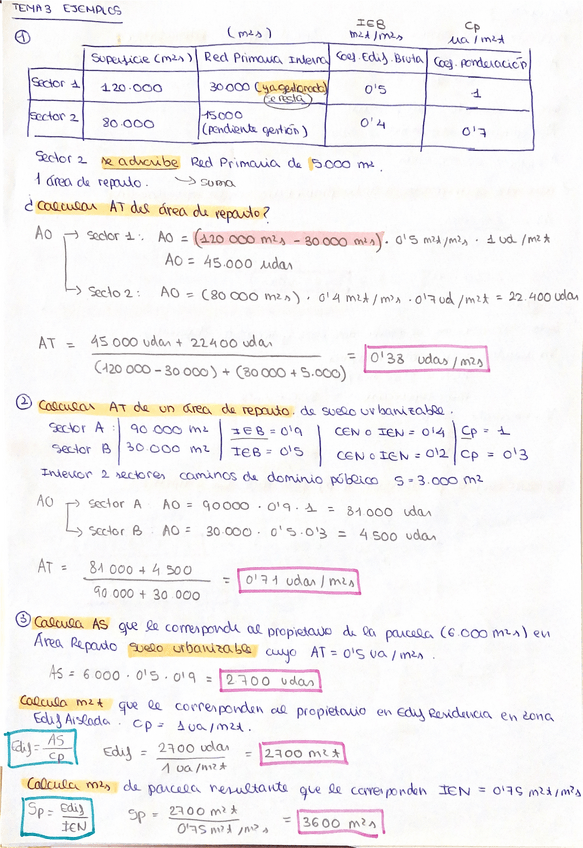 TEMA 3 EJEMPLOS
① (m²s) IEB m²t/m²s Cp ua/m²t
Superficie (m²s) Red Primaria Interna Coef. Edif. Bruta Coef. ponderación
Sector 1 120.000 30000 (ya gestionada) 0'5 1
(se resta)
Sector 2 80.000 15000 (pendiente gestión) 0'4 0'7
Sector 2 se adscribe Red Primaria de 5000 m².
1 área de reparto. → suma
¿Calcular AT del área de reparto?
AO → Sector 1: AO = (120 000 m²s - 30 000 m²s) · 0'5 m²t/m²s · 1 ud/m²t
AO = 45.000 udas
→ Secto 2: AO = (80 000 m²s) · 0'4 m²t/m²s · 0'7 ud/m²t = 22.400 udas
AT = 45 000 udas + 22400 udas / (120 000 - 30 000) + (80 000 + 5.000) = 0'38 udas/m²s
② Calcular AT de un área de reparto. de suelo urbanizable.
Sector A: 90 000 m² IEB = 0'9 CEN o IEN = 0'4 Cp = 1
Sector B 30 000 m² IEB = 0'5 CEN o IEN = 0'2 Cp = 0'3
Interior 2 sectores caminos de dominio público S = 3.000 m²
AO → Sector A: AO = 90000 · 0'9 · 1 = 81 000 udas
→ Sector B: AO = 30.000 · 0'5 · 0'3 = 4 500 udas
AT = 81 000 + 4 500 / 90 000 + 30 000 = 0'71 udas/m²s
③ Calcula AS que le corresponde al propietario de la parcela (6.000 m²s) en
Área Reparto suelo urbanizable cuyo AT = 0'5 ua/m²s.
AS = 6 000 · 0'5 · 0'9 = 2 700 udas
Calcula m²t que le corresponden al propietario en Edif Residencia en zona
Edif Aislada. Cp = 1 ua/m²t.
Edif = AS / Cp Edif = 2700 udas / 1 ua/m²t = 2700 m²t
Calcula m²s de parcela resultante que le corresponden IEN = 0'75 m²t/m²s
Sp = Edif / IEN Sp = 2700 m²t / 0'75 m²t/m²s = 3600 m²s